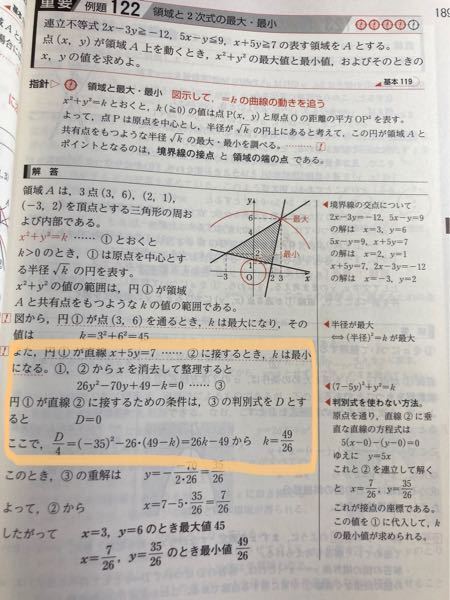 重要 例題 122 領域と2次式の最大・最小
189
連立不等式 2x-3y≧-12, 5x-y≦9, x+5y≧7 の表す領域をAとする。
点(x, y)が領域A上を動くとき, x²+y² の最大値と最小値, およびそのときの
x, y の値を求めよ。
基本 119
指針 領域と最大・最小 図示して, =k の曲線の動きを追う
x²+y²=k とおくと, k(≧0)の値は点P(x, y)と原点Oの距離の平方OP²を表す。
よって, 点Pは原点を中心とし, 半径が√kの円上にあると考えて, この円が領域Aと
共有点をもつような半径√kの最大・最小を調べる。…… !
ポイントとなるのは, 境界線の接点 と 領域の端の点 である。
解答
領域Aは, 3点(3, 6), (2, 1),
(-3, 2)を頂点とする三角形の周お
よび内部である。
x²+y²=k …… ① とおくと
k>0 のとき, ①は原点を中心とす
る半径√kの円を表す。
x²+y² の値の範囲は, 円①が領域
Aと共有点をもつようなkの値の範囲である。
y
6
最大
2
1
最小
-3
O
2 3
x
! 図から, 円①が点(3, 6)を通るとき, kは最大になり, その
値は k=3²+6²=45
! また, 円①が直線 x+5y=7 …… ② に接するとき, kは最小
になる。①, ②からxを消去して整理すると
26y²-70y+49-k=0 …… ③
円①が直線②に接するための条件は, ③の判別式をDとす
ると D=0
ここで, D/4=(-35)²-26・(49-k)=26k-49 から k=49/26
このとき, ③の重解は y=-(-70)/(2・26)=35/26
よって, ②から x=7-5・35/26=7/26
したがって x=3, y=6 のとき最大値 45
x=7/26, y=35/26 のとき最小値 49/26
◀境界線の交点について
2x-3y=-12, 5x-y=9
の解は x=3, y=6
5x-y=9, x+5y=7
の解は x=2, y=1
x+5y=7, 2x-3y=-12
の解は x=-3, y=2
◀半径が最大
⇔(半径)²=k が最大
◀(7-5y)²+y²=k
◀判別式を使わない方法。
原点を通り, 直線②に垂
直な直線の方程式は
5(x-0)-(y-0)=0
ゆえに y=5x
これと②を連立して解く
と x=7/26, y=35/26
これが接点の座標である。
この値を①に代入して, k
の最小値が求められる。